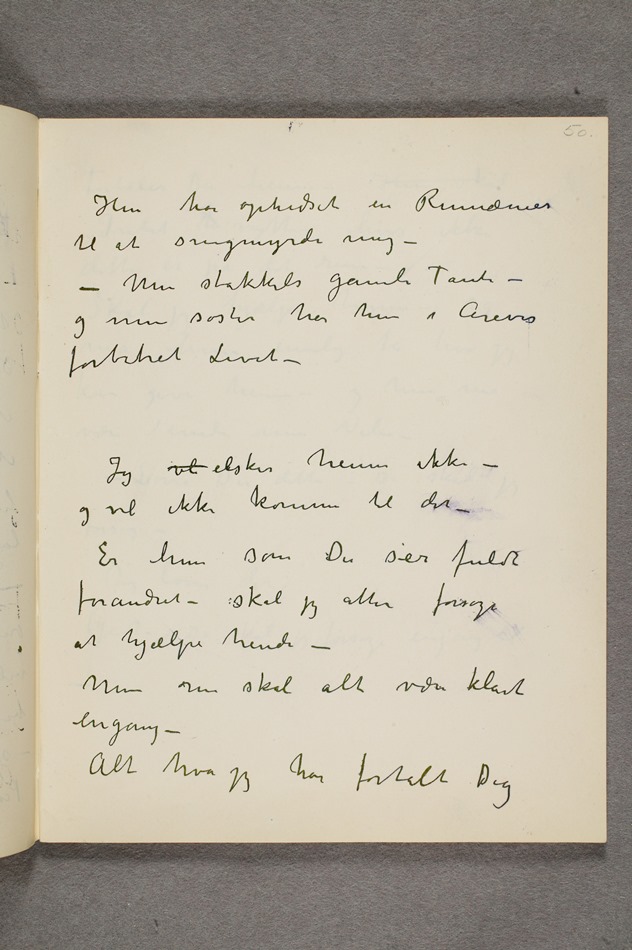 50.
Hun har ophidset en Rumæner
til at snigmyrde mig –
– Min stakkels gamle Tante –
og min søster har hun i Årevis
forbitret Livet –
Jeg vil elsker henne ikke –
og vil ikke komme til det –
Er hun som Du sier fuldt
forandret – skal jeg atter forsøge
at hjælpe hende –
Men om skal alt være klart
engang –
Alt hva jeg har fortalt Dig